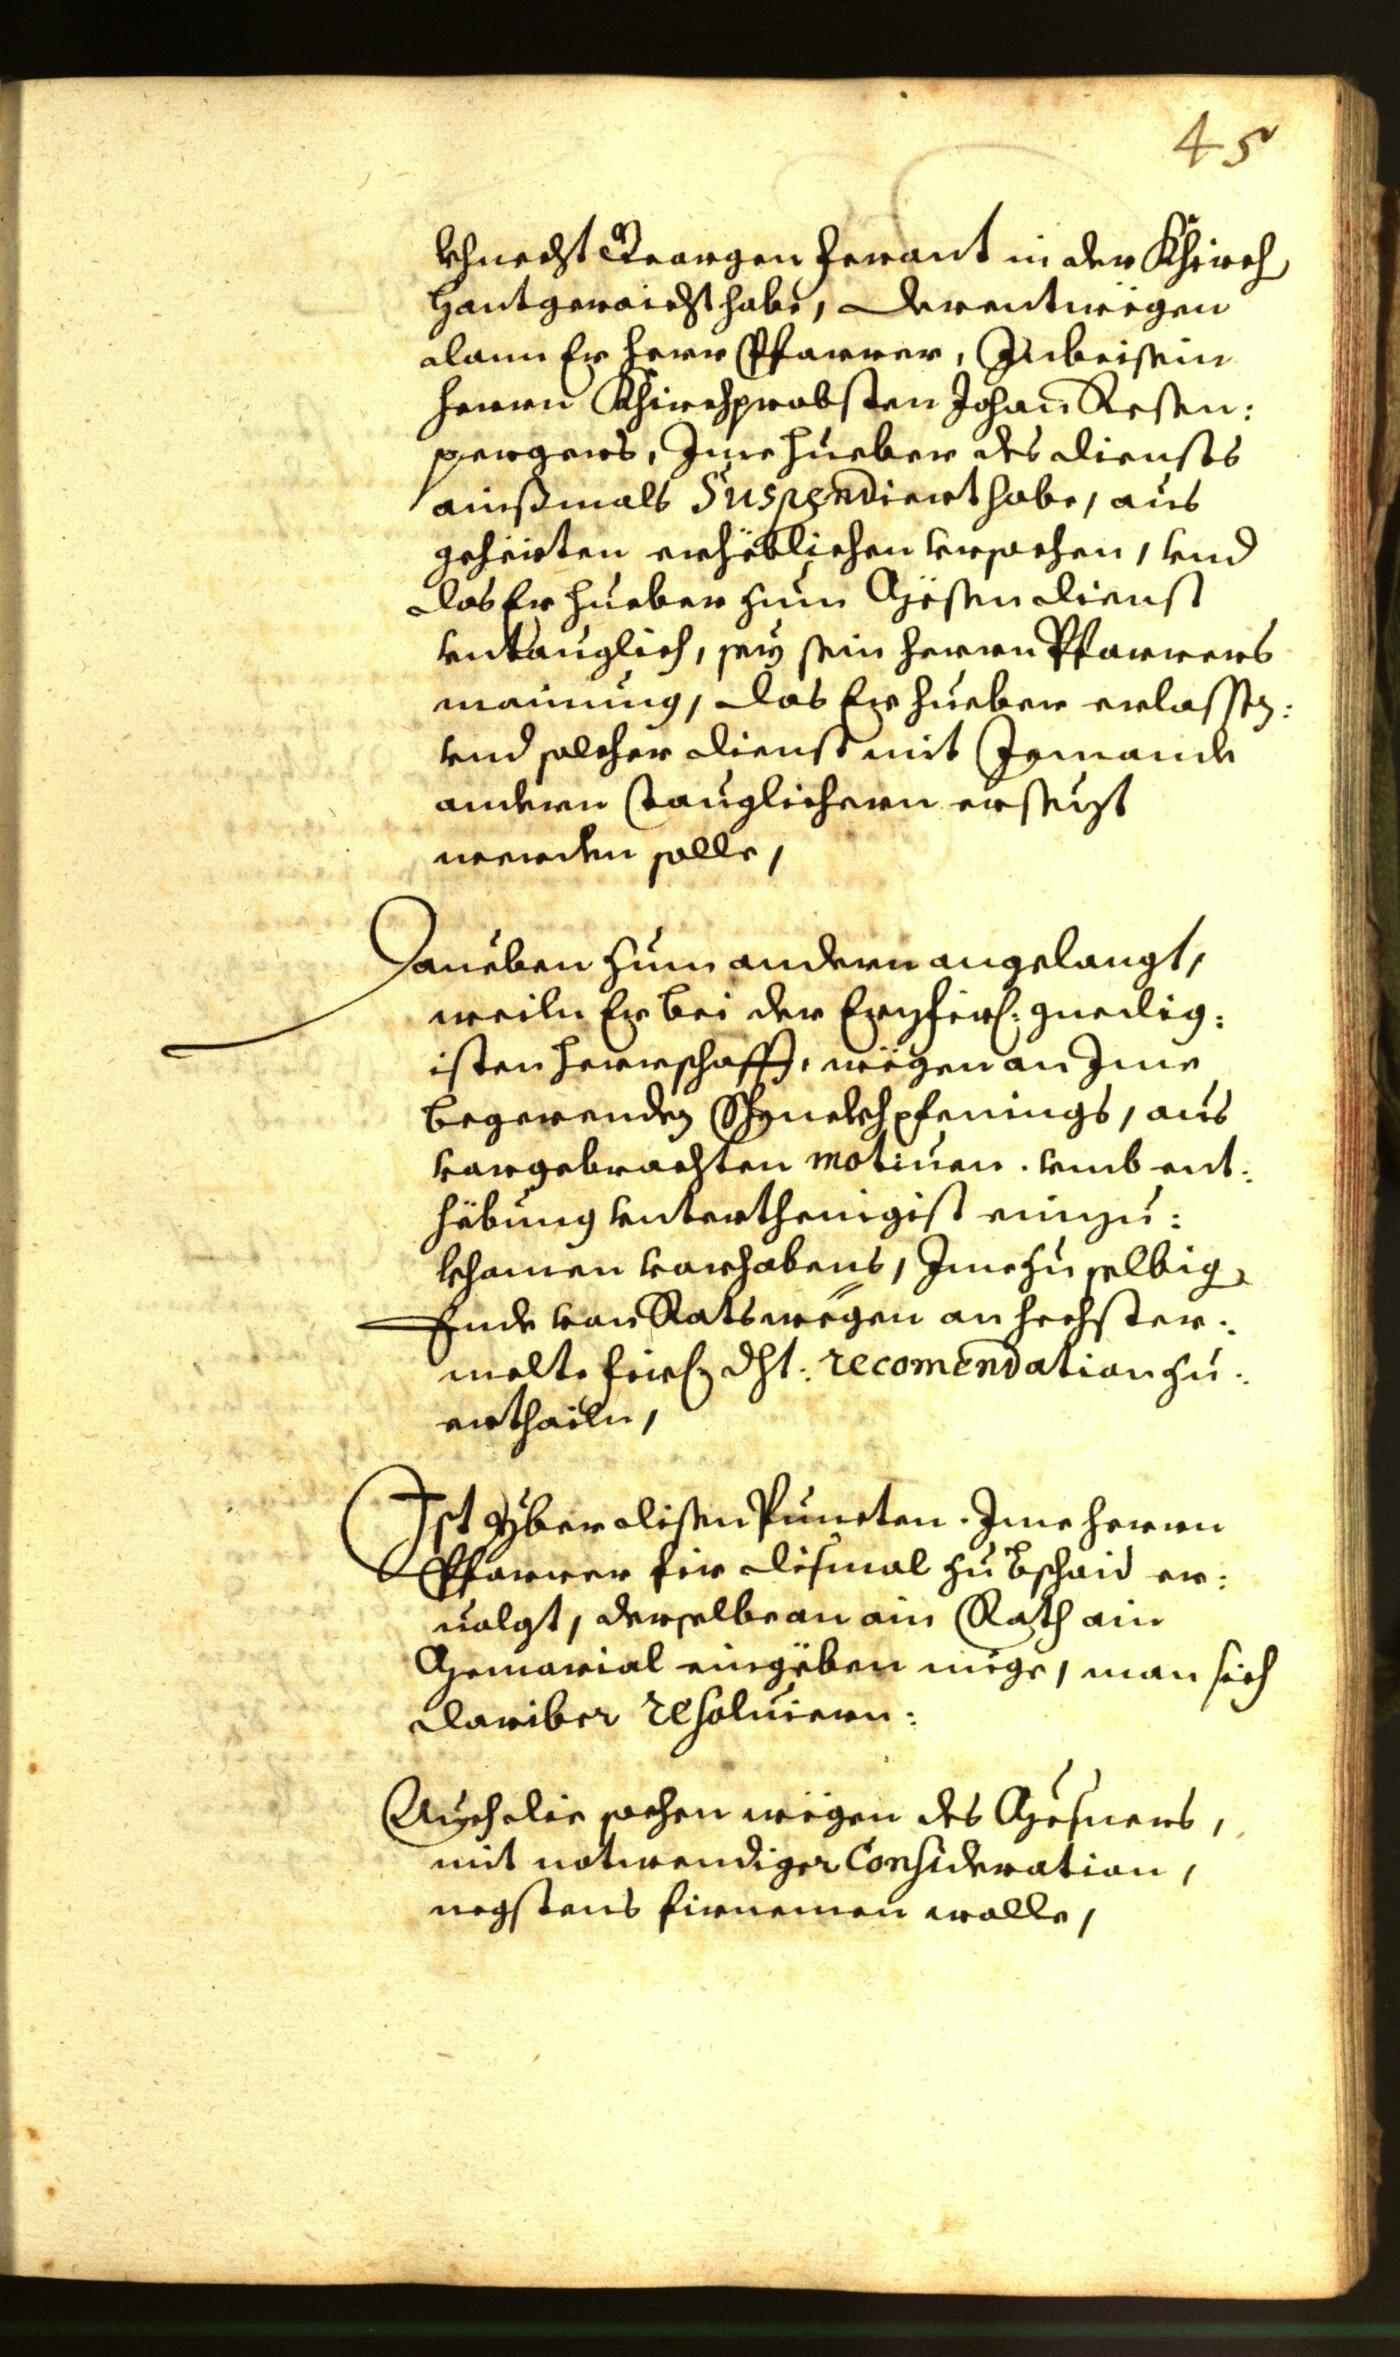 45
khnecht Georgen Ferant in der Khirch
Hantgeraicht habe, derentwegen
dann Er herr Pfarrer, In beisein
herrn Khirchprobsten Johan Resen:
pergers, Ime Hueber des diensts
ainßmals Suspendiert habe, aus
geherten erhëblichen vrsachen, vnd
das Er Hueber zum Mësen dienst
vntauglich, sey sein herrn Pfarrers
mainung, das Er Hueber erlassen:
vnd solcher dienst mit Jemande
andern tauglichern ersetzt
werden solle,
Daneben zum andern angelangt,
weiln Er bei der Erzfirl: gnedig:
isten herrschafft, wëgen an Ime
begerenden Schneckhpfenings, aus
vorgebrachten motiuen. vmb ent:
hëbung vnterthenigist einzu:
khomen vorhabens, Ime zu selbig
Ende von Ratswëgen an hechster:
melte Firl: Dht: recomendation zu:
erthailn,
Ist yber disen Puncten. Ime herrn
Pfarrer fir dismal zu bschaid er:
uolgt, derselbe an ain Rath ain
Memorial eingëben mëge, man sich
dariber resoluiern:
Auch die sachen wëgen des Mësners,
mit notwendiger Consideration,
negstens firnemen wolle,